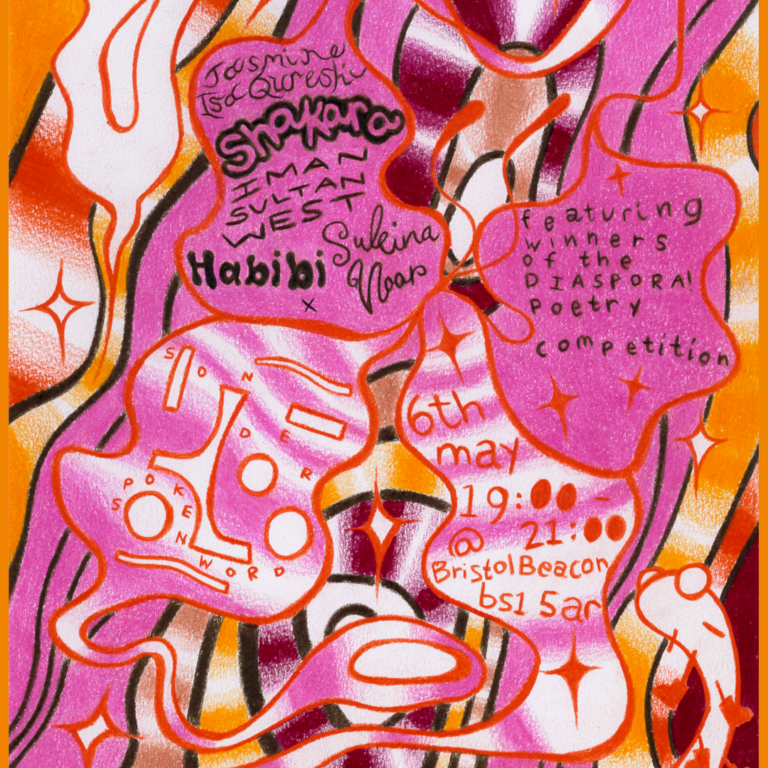 Jasmine
Isa Qureshi
Shakara
IMAN
SULTAN
WEST
Sukina
Noor
Habibi
x
featuring
winners
of the
DIASPORA!
Poetry
competition
SON
DER
SPOKEN
WORD
6th
may
19:00 -
21:00
@
Bristol Beacon
bs1 5ar